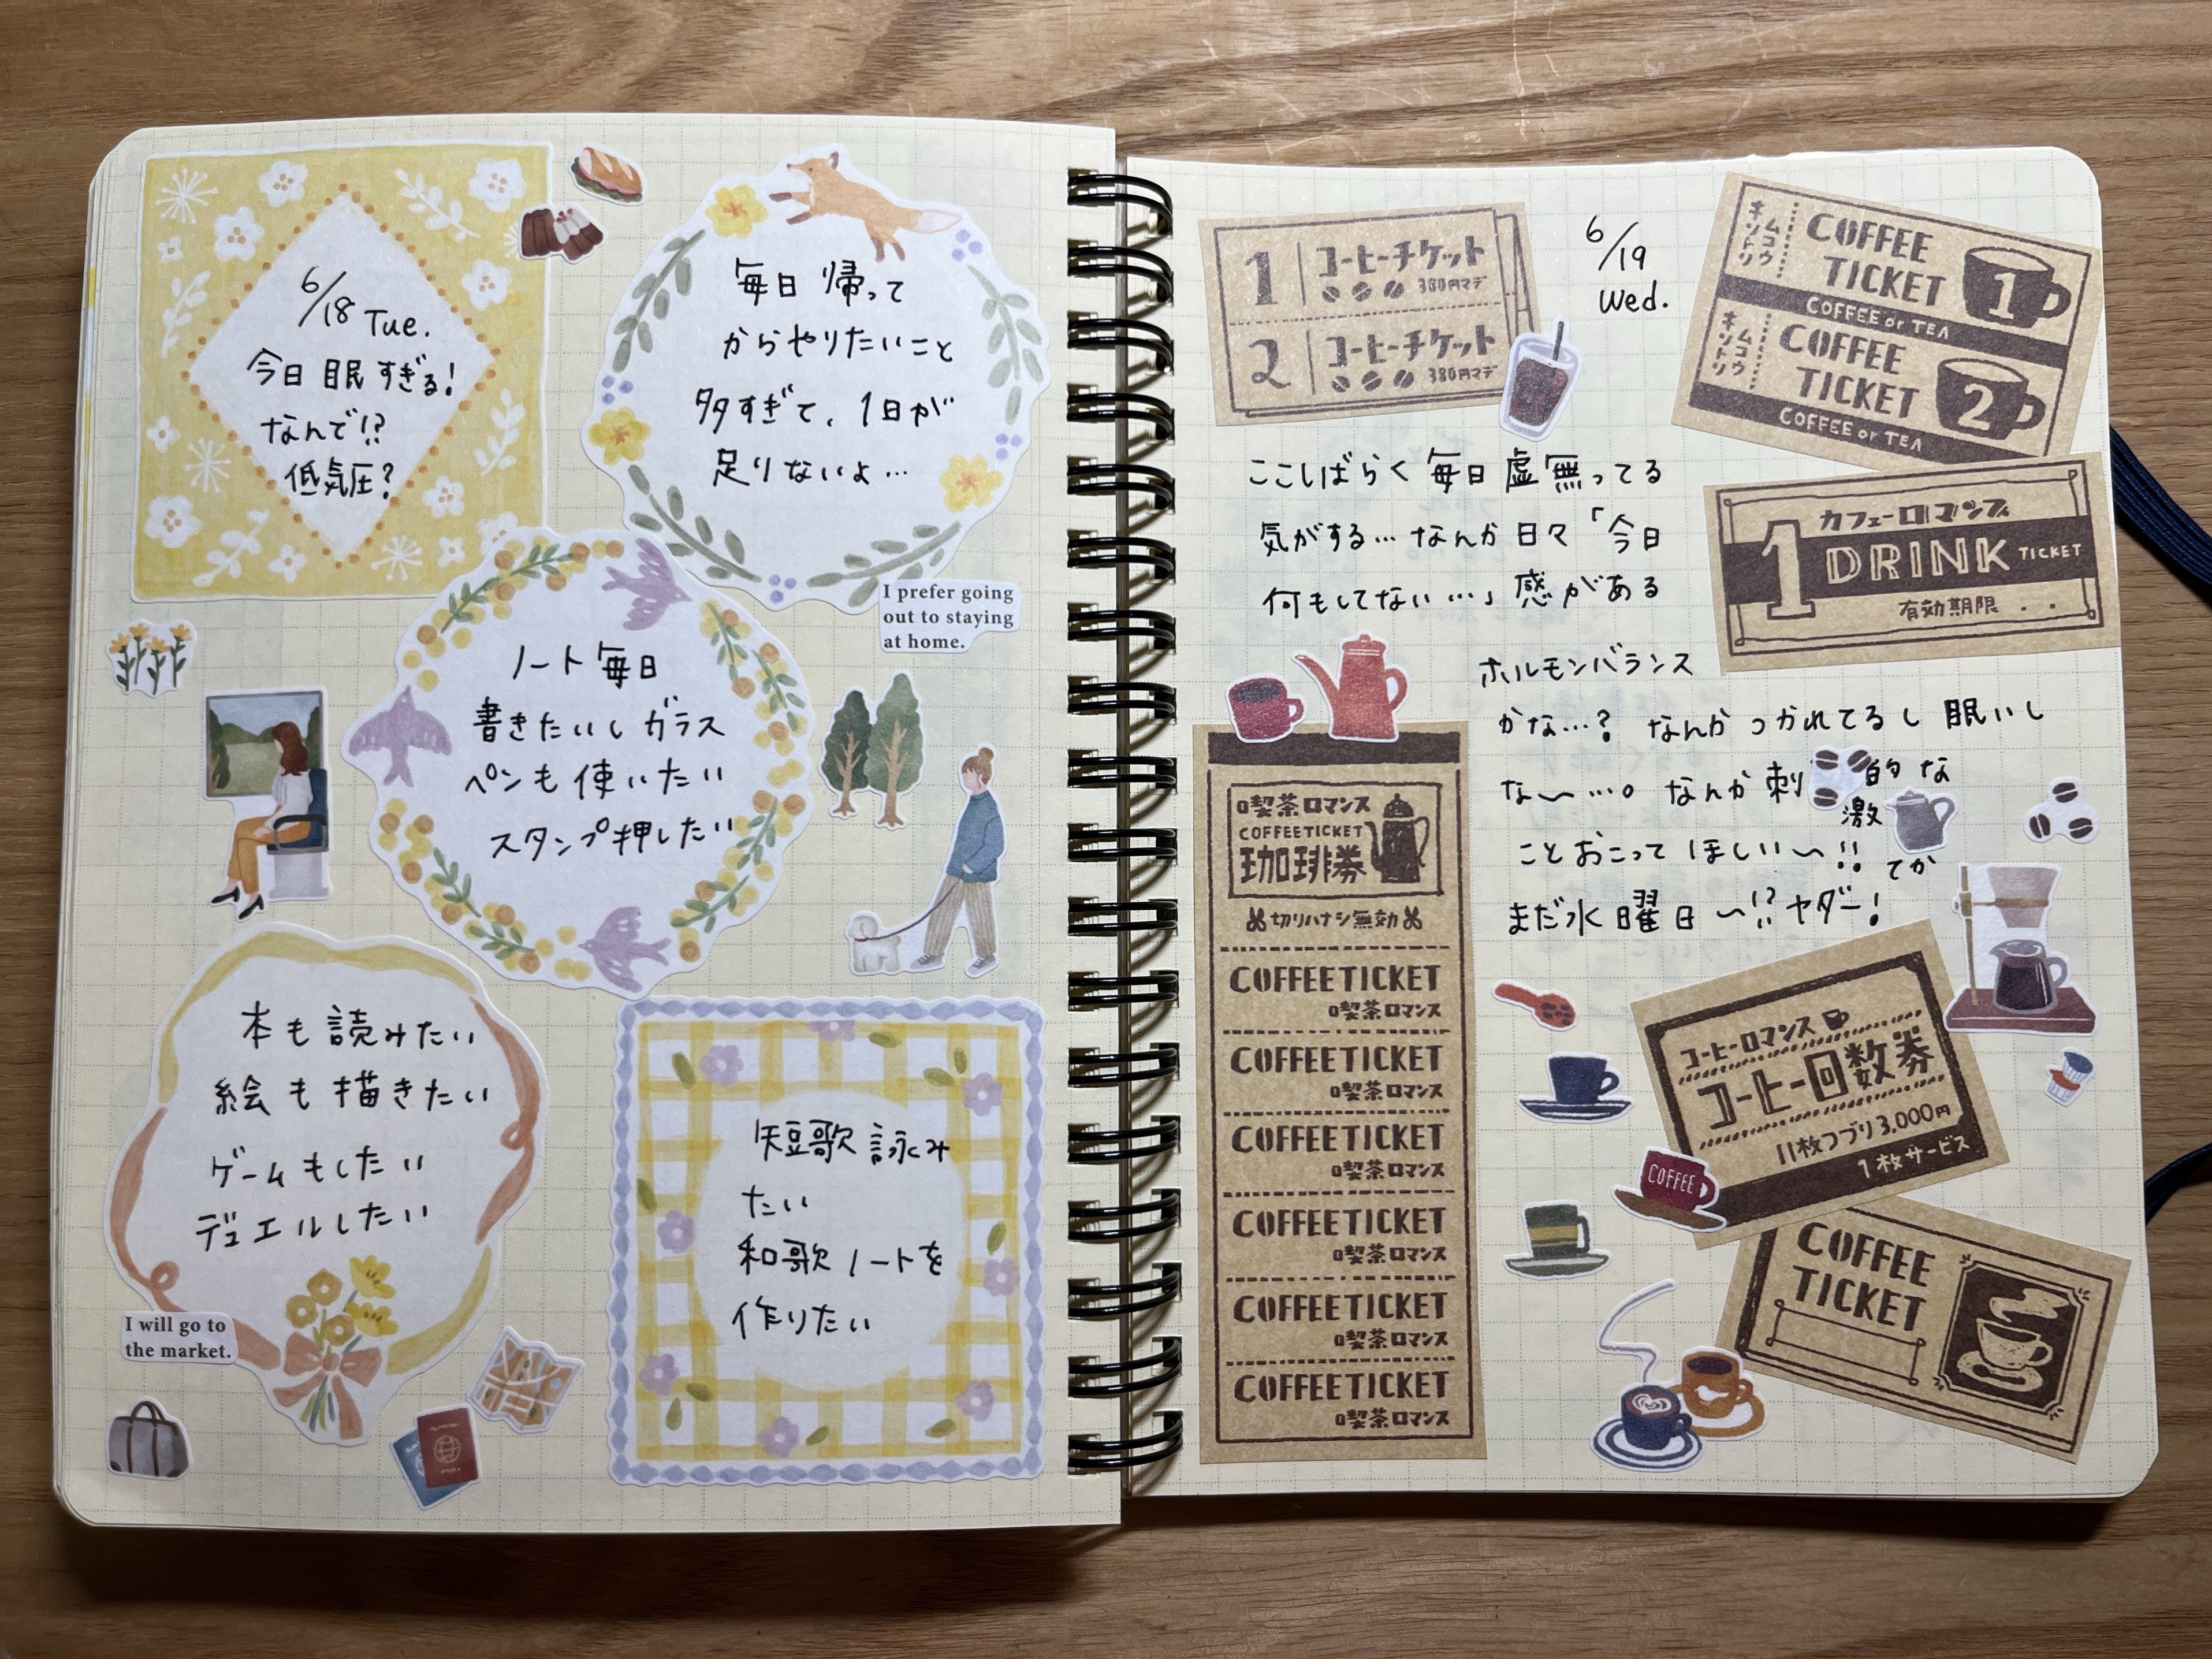 6/18 Tue.
今日 眠すぎる!
なんで!?
低気圧?
毎日 帰って
からやりたいこと
多すぎて、1日が
足りないよ…
I prefer going
out to staying
at home.
ノート 毎日
書きたいし ガラス
ペンも 使いたい
スタンプ押したい
本も読みたい
絵も描きたい
ゲームもしたい
デュエルしたい
I will go to
the market.
短歌 詠み
たい
和歌ノートを
作りたい
1 コーヒーチケット
380円マデ
2 コーヒーチケット
380円マデ
6/19
Wed.
キリトリ
ムコウ
COFFEE
TICKET
1
COFFEE or TEA
キリトリ
ムコウ
COFFEE
TICKET
2
COFFEE or TEA
カフェーロマンス
1 DRINK TICKET
有効期限 . .
ここしばらく 毎日 虚無ってる
気がする… なんか 日々 「今日
何もしてない…」感がある
ホルモンバランス
かな…? なんか つかれてるし 眠いし
な〜…。 なんか 刺激的な
ことおこって ほしい〜!! てか
まだ水曜日〜!? ヤダー!
喫茶ロマンス
COFFEETICKET
珈琲券
切リハナシ無効
COFFEETICKET
喫茶ロマンス
COFFEETICKET
喫茶ロマンス
COFFEETICKET
喫茶ロマンス
COFFEETICKET
喫茶ロマンス
COFFEETICKET
喫茶ロマンス
COFFEETICKET
喫茶ロマンス
コーヒーロマンス
コーヒー回数券
11枚つづり3,000円
1枚サービス
COFFEE
COFFEE
TICKET